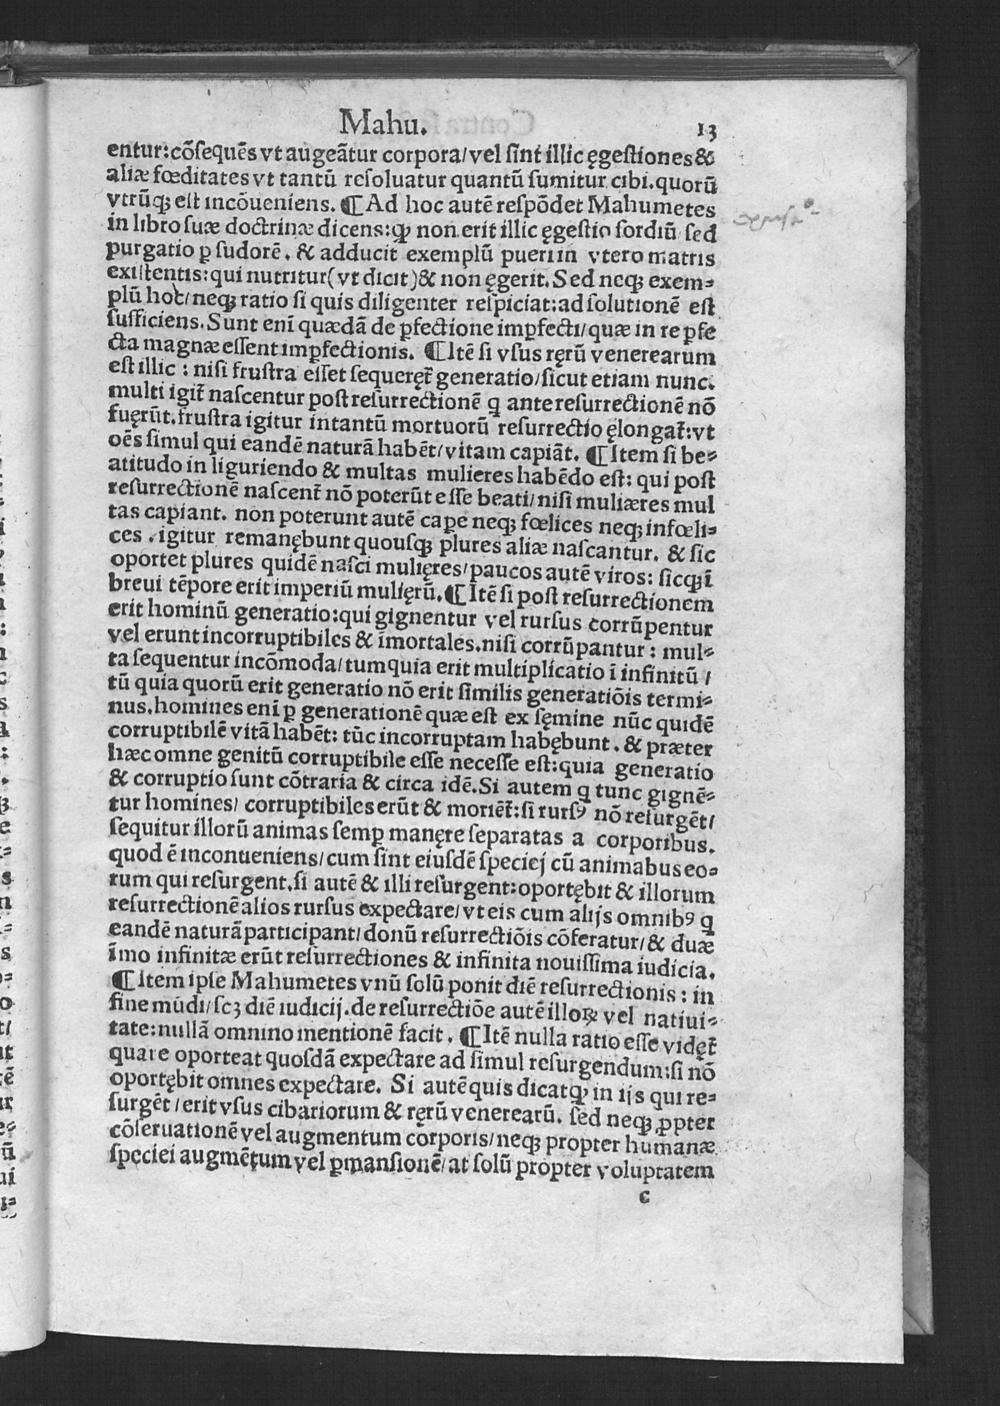 Mahu. 13
entur:cõſequẽs vt augeãtur corpora/vel ſint illic ęgeſtiones &
aliæ fœditates vt tantũ reſoluatur quantũ ſumitur cibi.quorũ
vtrũqꝫ eſt incõueniens. ¶ Ad hoc autẽ reſpõdet Mahumetes
in libro ſuæ doctrinæ dicens:ꝙ non erit illic ęgeſtio ſordiũ ſed
purgatio ꝑ ſudorẽ. & adducit exemplũ pueri in vtero matris
exiſtentis:qui nutritur(vt dicit)& non ęgerit. Sed neqꝫ exem⸗
plũ hoc/neqꝫ ratio ſi quis diligenter reſpiciat:ad ſolutionẽ eſt
ſufficiens.Sunt enĩ quædã de ꝑfectione imꝑfecti/quæ in re ꝑfe
cta magnæ eſſent imꝑfectionis. ¶ Itẽ ſi vſus ręrũ venerearum
eſt illic : niſi fruſtra eſſet ſequeręt᷑ generatio/ſicut etiam nunc.
multi igit᷑ naſcentur poſt reſurrectionẽ q̃ ante reſurrectionẽ nõ
fuęrũt.fruſtra igitur intantũ mortuorũ reſurrectio ęlongat᷑:vt
oẽs ſimul qui eandẽ naturã habẽt/vitam capiãt. ¶ Item ſi be⸗
atitudo in liguriendo & multas mulieres habẽdo eſt: qui poſt
reſurrectionẽ naſcent᷑ nõ poterũt eſſe beati/niſi muliæres mul
tas capiant. non poterunt autẽ capę neqꝫ fœlices neqꝫ infœli⸗
ces . igitur remanębunt quouſqꝫ plures aliæ naſcantur. & ſic
oportet plures quidẽ naſci mulięres/paucos autẽ viros: ſicqꝫ ĩ
breui tẽpore erit imperiũ mulięrũ. ¶ Itẽ ſi poſt reſurrectionem
erit hominũ generatio:qui gignentur vel rurſus corrũpentur
vel erunt incorruptibiles & ĩmortales.niſi corrũpantur : mul⸗
ta ſequentur incõmoda/tum quia erit multiplicatio ĩ infinitũ /
tũ quia quorũ erit generatio nõ erit ſimilis generatiõis termi⸗
nus.homines enĩ ꝑ generationẽ quæ eſt ex ſęmine nũc quidẽ
corruptibilẽ vitã habẽt: tũc incorruptam habębunt . & præter
hæc omne genitũ corruptibile eſſe neceſſe eſt:quia generatio
& corruptio ſunt cõtraria & circa idẽ.Si autem q̃ tunc gignẽ⸗
tur homines/ corruptibiles erũt & moriẽt᷑:ſi rurſꝰ nõ reſurgẽt/
ſequitur illorũ animas ſemꝑ manęre ſeparatas a corporibus.
quod ẽ inconueniens/cum ſint eiuſdẽ ſpeciej cũ animabus eo⸗
rum qui reſurgent.ſi autẽ & illi reſurgent:oportębit & illorum
reſurrectionẽ alios rurſus expectare/vt eis cum alijs omnibꝰ q̃
eandẽ naturã participant/donũ reſurrectiõis cõferatur/& duæ
ĩmo infinitæ erũt reſurrectiones & infinita nouiſſima iudicia.
¶ Item ipſe Mahumetes vnũ ſolũ ponit diẽ reſurrectionis : in
fine mũdi/ſcꝫ diẽ iudicij.de reſurrectiõe autẽ illoꝝ vel natiui⸗
tate:nullã omnino mentionẽ facit. ¶ Itẽ nulla ratio eſſe vidęt᷑
quare oporteat quoſdã expectare ad ſimul reſurgendum:ſi nõ
oportębit omnes expectare. Si autẽ quis dicat ꝙ in ijs qui re⸗
ſurgẽt/erit vſus cibariorum & ręrũ venerearũ. ſed neqꝫ ꝓpter
cõſeruationẽ vel augmentum corporis/neqꝫ propter humanæ
ſpęciei augmẽtum vel ꝑmanſionẽ/at ſolũ propter voluptatem
c